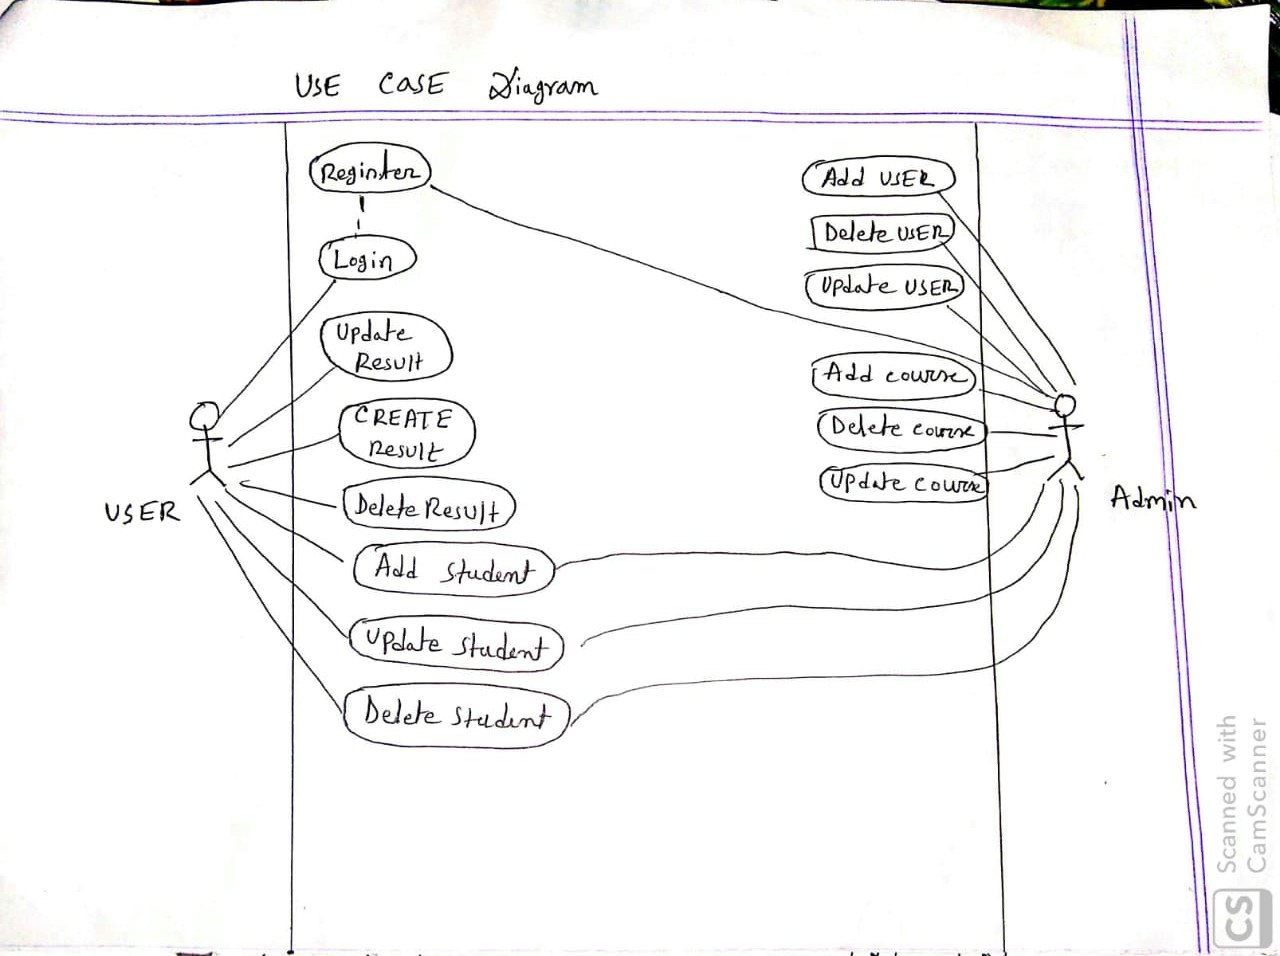 USE CASE Diagram
Register
Login
Update
Result
CREATE
Result
Delete Result
Add student
Update student
Delete student
USER
Add USER
Delete USER
Update USER
Add course
Delete course
Update course
Admin
CS Scanned with
CamScanner